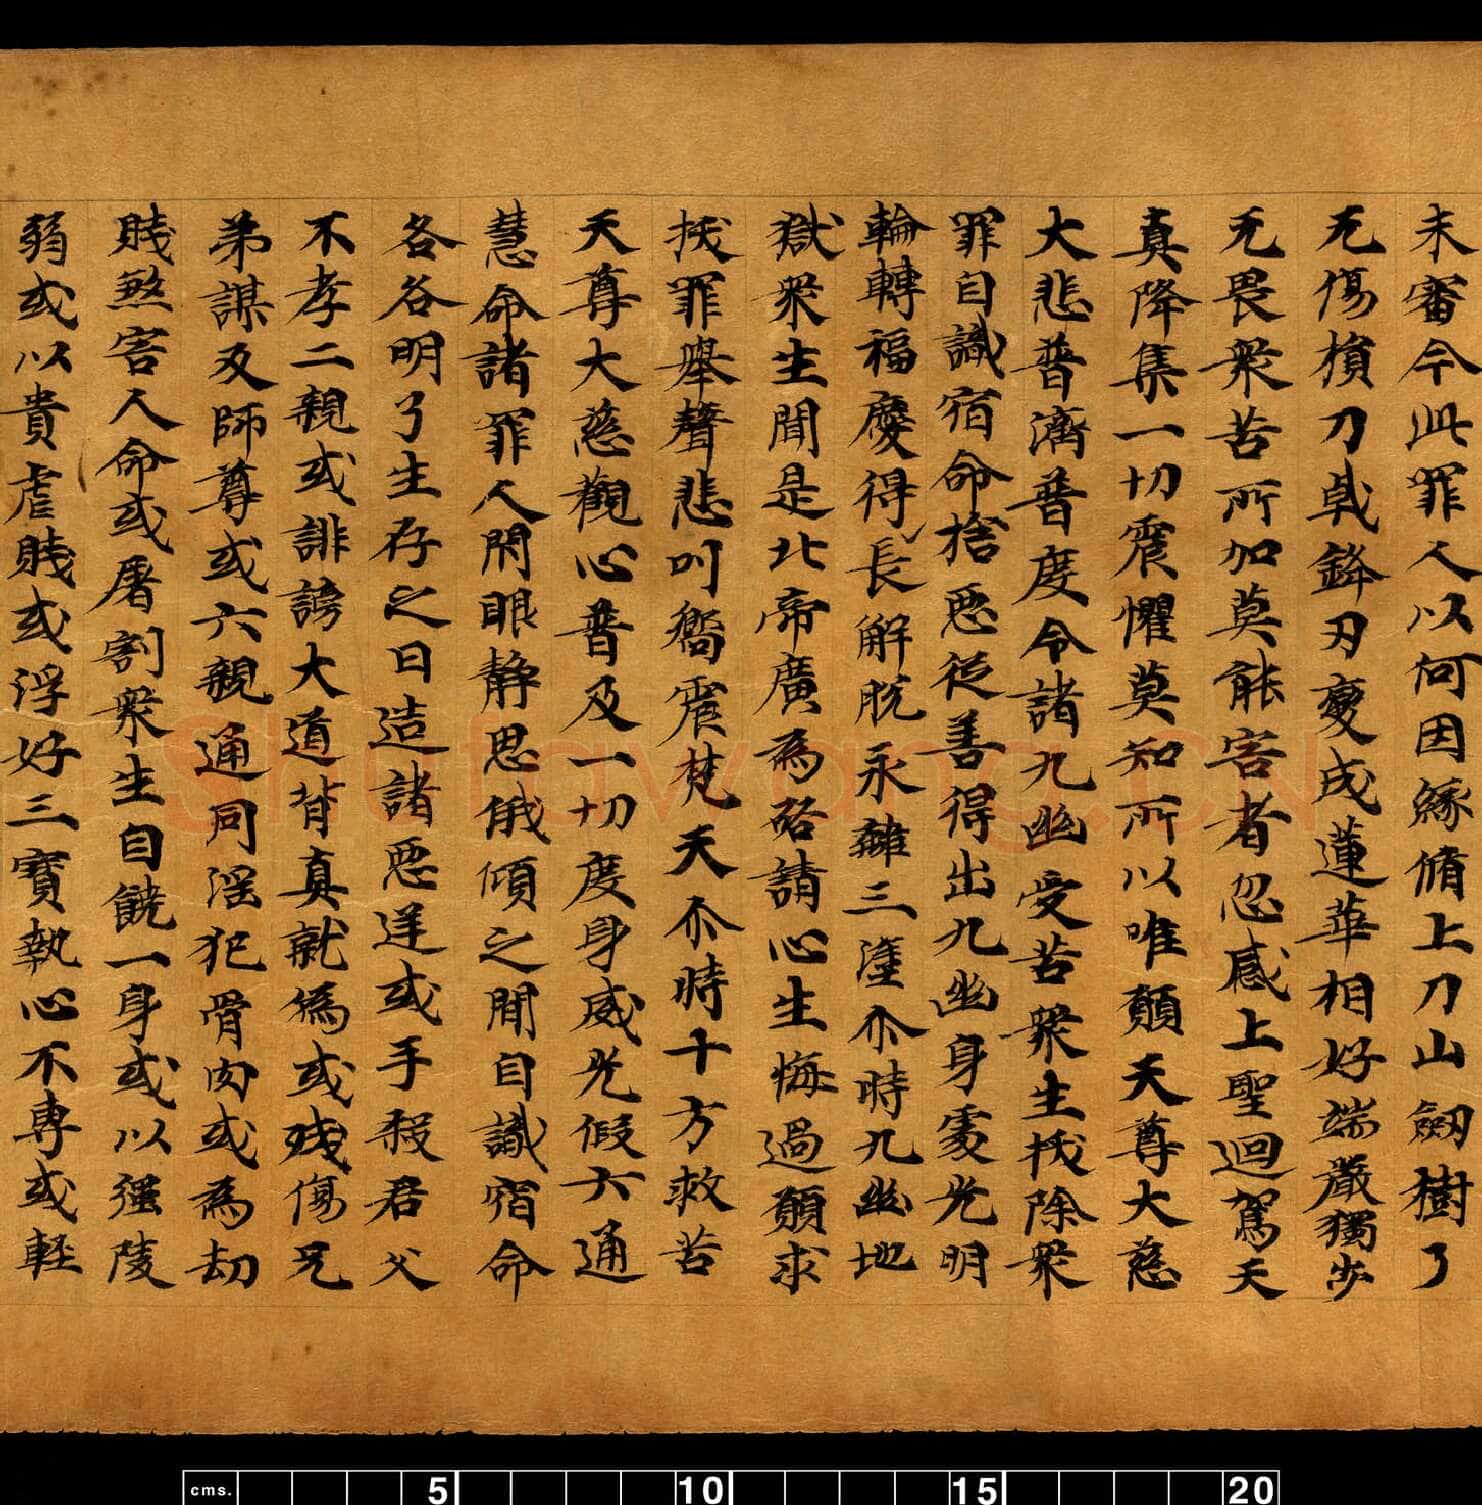 未審今此罪人以何因緣脩上刀山劒樹了
无傷損刀戟鋒刃變成蓮華相好端嚴獨步
无畏衆苦所加莫能害者忽感上聖迴駕天
真降集一切震懼莫知所以唯願天尊大慈
大悲普濟普度令諸九幽受苦衆生拔除衆
罪自識宿命捨惡從善得出九幽身處光明
輪轉福慶得長解脫永離三塗尒時九幽地
獄衆生聞是北帝廣為啓請心生悔過願求
拔罪舉聲悲叫嚮震梵天尒時十方救苦
天尊大慈觀心普及一切度身威光假六通
慧命諸罪人閇眼靜思俄傾之間自識宿命
各各明了生存之日造諸惡逆或手殺君父
不孝二親或誹謗大道背真就偽或殘傷兄
弟謀及師尊或六親通同淫犯骨肉或為劫
賊煞害人命或屠割衆生自饒一身或以强陵
弱或以貴虐賤或浮好三寶執心不專或輕
cms. 5 10 15 20
shufawang.cn